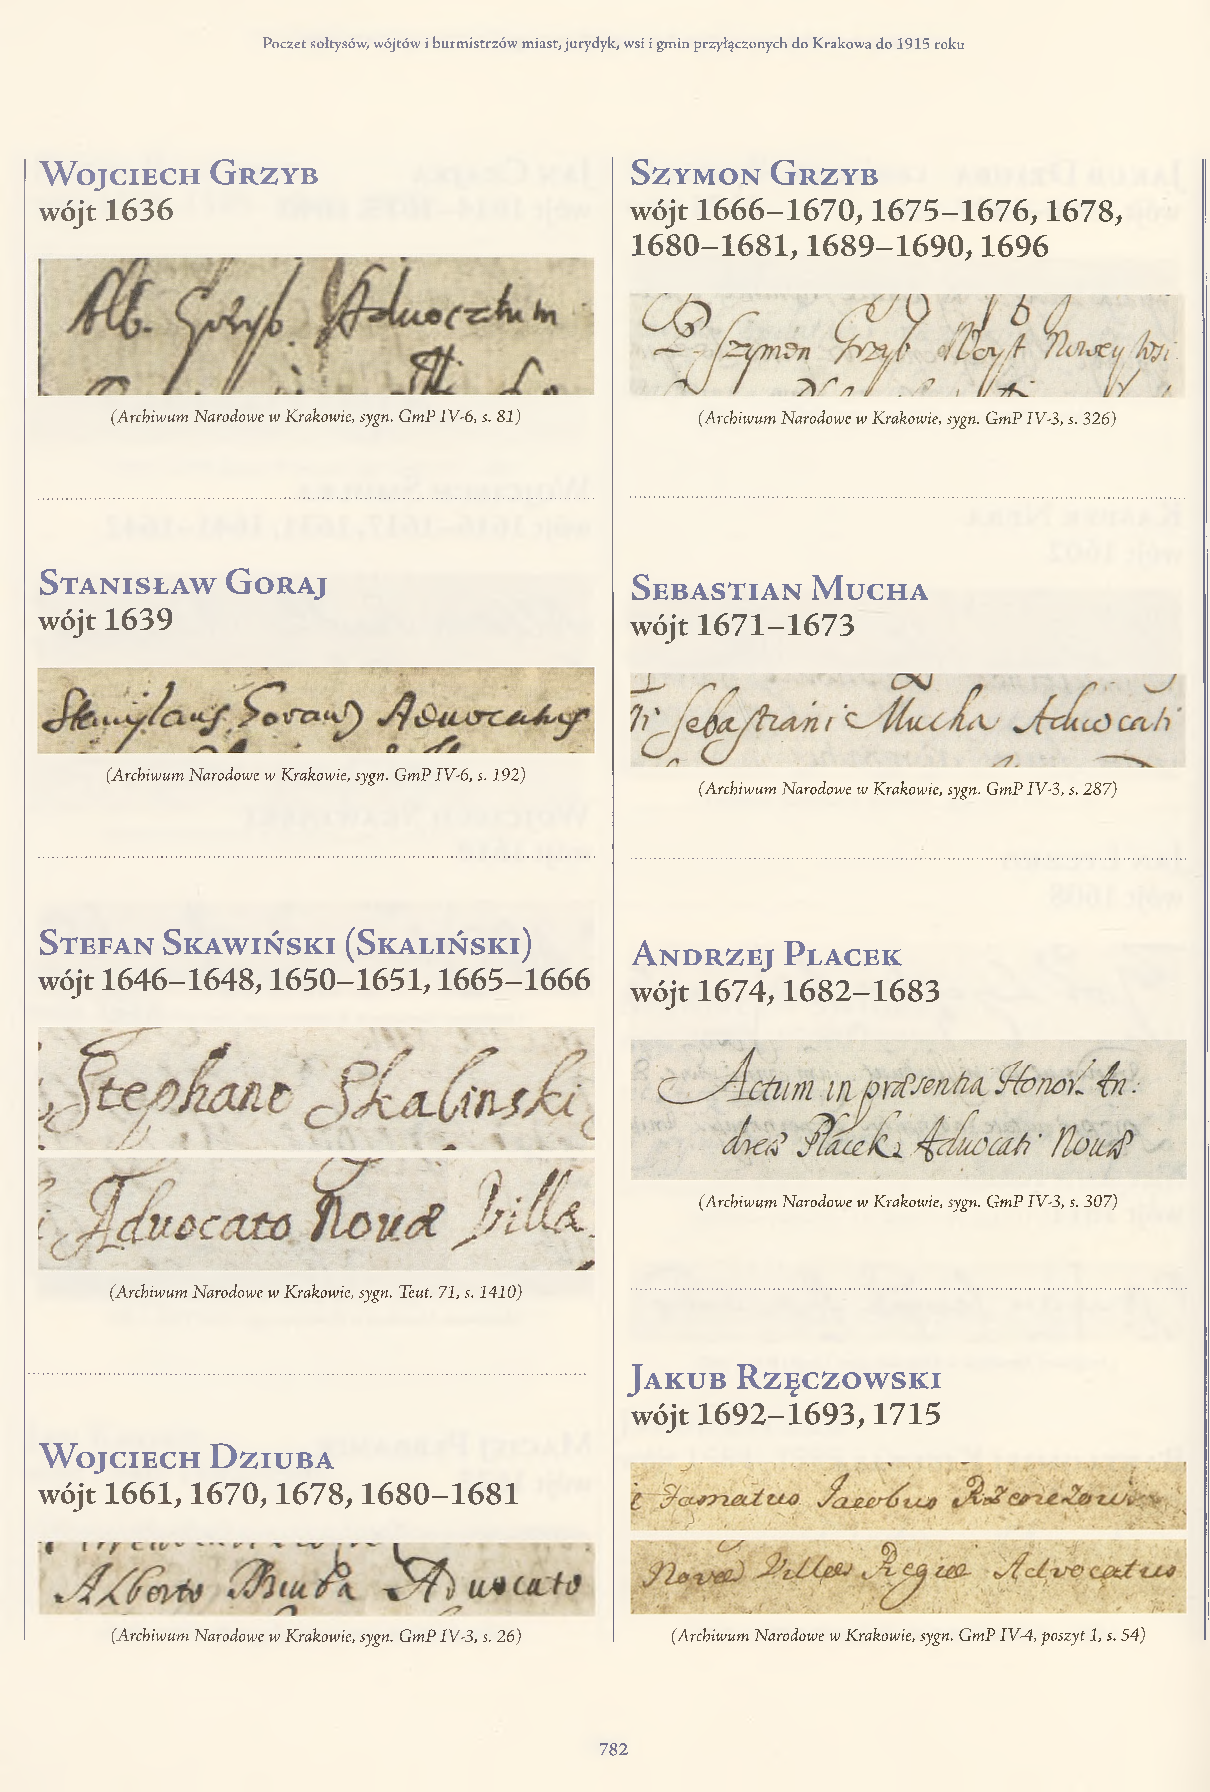 Poczet sołtysów, wójtów i burmistrzów miast, jurydyk, wsi i gmin przyłączonych do Krakowa do 1915 roku
Wojciech Grzyb
wójt 1636
Alb. Grzyb Advocatum
(Archiwum Narodowe w Krakowie, sygn. GmP IV-6, s. 81)
Stanisław Goraj
wójt 1639
Stanislaus Advocatus
(Archiwum Narodowe w Krakowie, sygn. GmP IV-6, s. 192)
Stefan Skawiński (Skaliński)
wójt 1646–1648, 1650–1651, 1665–1666
Stephano Skalinski
Advocato Nouæ Villæ
(Archiwum Narodowe w Krakowie, sygn. Teut. 71, s. 1410)
Wojciech Dziuba
wójt 1661, 1670, 1678, 1680–1681
Alberto Dziuba Aduocato
(Archiwum Narodowe w Krakowie, sygn. GmP IV-3, s. 26)
Szymon Grzyb
wójt 1666–1670, 1675–1676, 1678,
1680–1681, 1689–1690, 1696
Szymon Grzyb Woyt Nowey Wsi
(Archiwum Narodowe w Krakowie, sygn. GmP IV-3, s. 326)
Sebastian Mucha
wójt 1671–1673
Sebastiani Mucha Aduocati
(Archiwum Narodowe w Krakowie, sygn. GmP IV-3, s. 287)
Andrzej Placek
wójt 1674, 1682–1683
Actum in præsentia Honor. An:
dreæ Placek Aduocati Nouæ
(Archiwum Narodowe w Krakowie, sygn. GmP IV-3, s. 307)
Jakub Rzęczowski
wójt 1692–1693, 1715
Famatus Jacobus
Novæ Villæ Regiæ Advocatus
(Archiwum Narodowe w Krakowie, sygn. GmP IV-4, poszyt 1, s. 54)
782